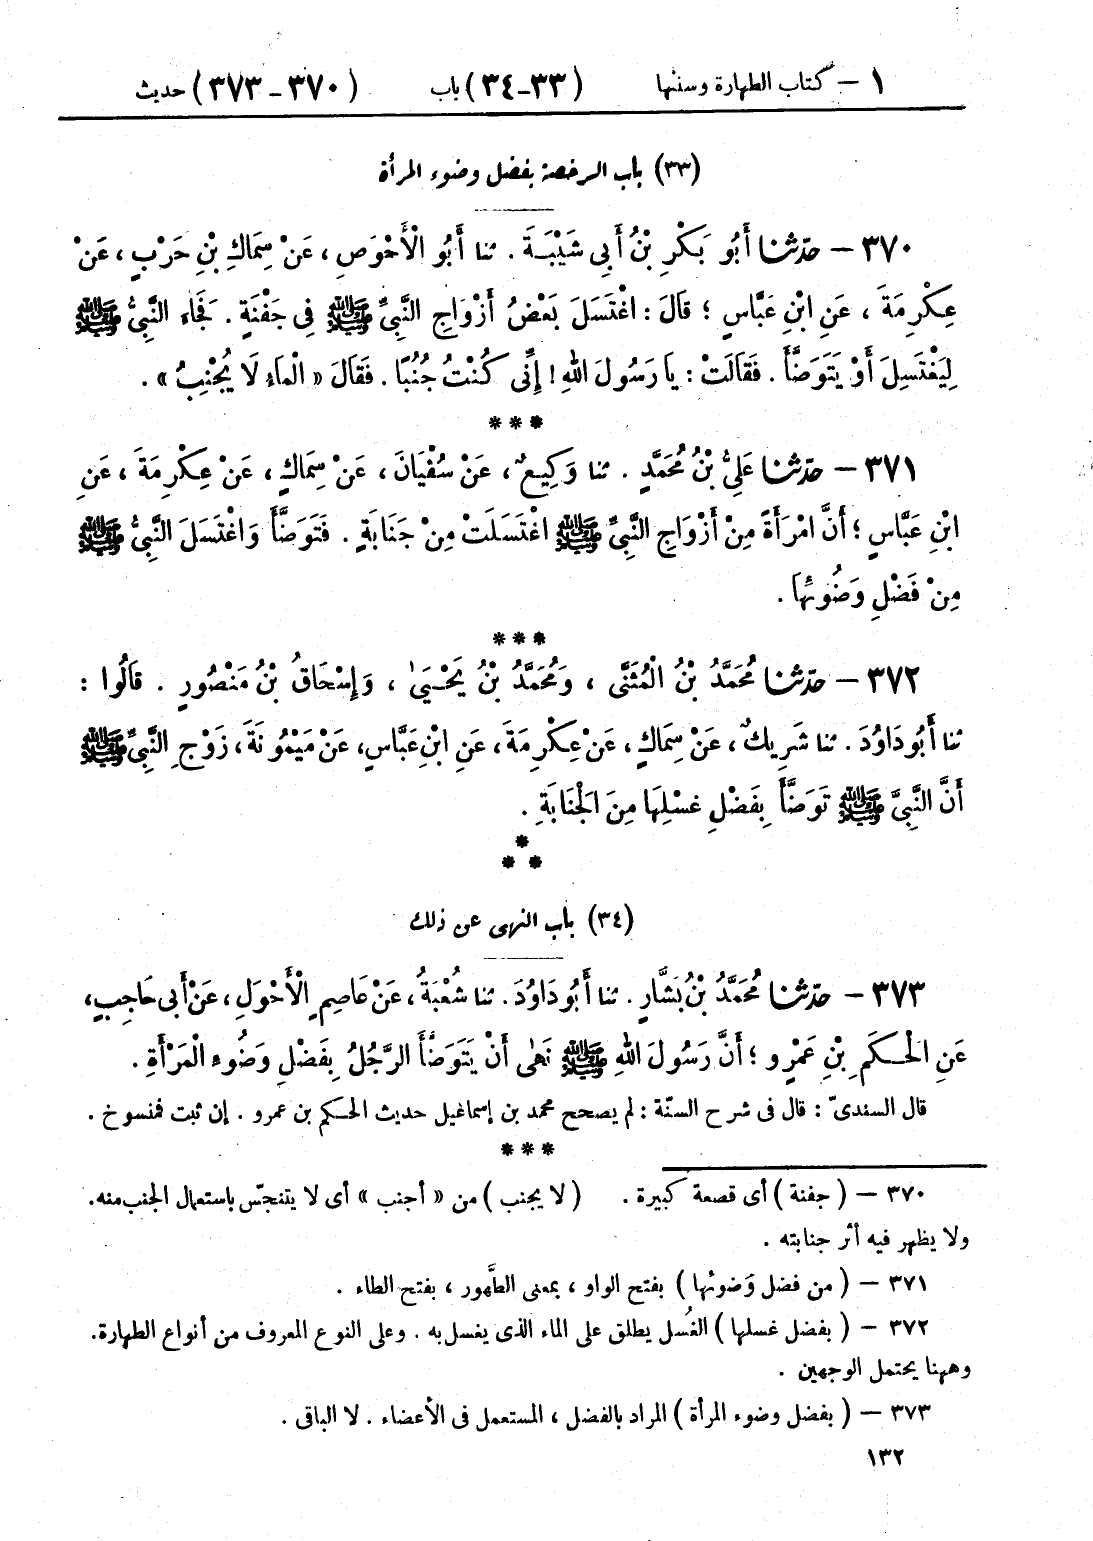 ١ – كتاب الطهارة وسننها (٣٣-٣٤) باب (٣٧٠-٣٧٣) حديث
(٣٣) باب الرخصة بفضل وضوء المرأة
٣٧٠ – حدّثنا أَبُو بَكْرِ بْنُ أَبِى شَيْبَةَ . ثنا أَبُو الْأَحْوَصِ ، عَنْ سِمَاكِ بْنِ حَرْبٍ ، عَنْ
عِكْرِمَةَ ، عَنِ ابْنِ عَبَّاسٍ ؛ قَالَ : اغْتَسَلَ بَعْضُ أَزْوَاجِ النَّبِيِّ ﷺ فِى جَفْنَةٍ . فَجَاءَ النَّبِيُّ ﷺ
لِيَغْتَسِلَ أَوْ يَتَوَضَّأَ . فَقَالَتْ : يا رَسُولَ اللهِ ! إِنِّى كُنْتُ جُنُبًا . فَقَالَ « الْمَاءُ لَا يُجْنِبُ » .
***
٣٧١ – حدّثنا عَلِيُّ بْنُ مُحَمَّدٍ . ثنا وَكِيعٌ ، عَنْ سُفْيَانَ ، عَنْ سِمَاكٍ ، عَنْ عِكْرِمَةَ ، عَنِ
ابْنِ عَبَّاسٍ ؛ أَنَّ امْرَأَةً مِنْ أَزْوَاجِ النَّبِيِّ ﷺ اغْتَسَلَتْ مِنْ جَنَابَةٍ . فَتَوَضَّأَ وَاغْتَسَلَ النَّبِيُّ ﷺ
مِنْ فَضْلِ وَضُوئِهَا .
***
٣٧٢ – حدّثنا مُحَمَّدُ بْنُ الْمُثَنَّى ، وَمُحَمَّدُ بْنُ يَحْيَىٰ ، وَإِسْحَاقُ بْنُ مَنْصُورٍ . قَالُوا :
ثنا أَبُو دَاوُدَ . ثنا شَرِيكٌ ، عَنْ سِمَاكٍ ، عَنْ عِكْرِمَةَ ، عَنِ ابْنِ عَبَّاسٍ ، عَنْ مَيْمُونَةَ ، زَوْجِ النَّبِيِّ ﷺ
أَنَّ النَّبِيَّ ﷺ تَوَضَّأَ بِفَضْلِ غسْلِهَا مِنَ الْجَنَابَةِ .
*
* *
(٣٤) باب النهى عن ذلك
٣٧٣ – حدّثنا مُحَمَّدُ بْنُ بَشَّارٍ . ثنا أَبُو دَاوُدَ . ثنا شُعْبَةُ ، عَنْ عَاصِمٍ الْأَحْوَلِ ، عَنْ أَبِى حَاجِبٍ ،
عَنِ الْحَكَمِ بْنِ عَمْرٍو ؛ أَنَّ رَسُولَ اللهِ ﷺ نَهَى أَنْ يَتَوَضَّأَ الرَّجُلُ بِفَضْلِ وَضُوءِ الْمَرْأَةِ .
قال السندىّ : قال فى شرح السنّة : لم يصحح محمد بن إسماعيل حديث الحكم بن عمرو . إن ثبت فمنسوخ .
***
٣٧٠ – ( جفنة ) أى قصعة كبيرة . ( لا يجنب ) من « أجنب » أى لا يتنجّس باستعمال الجنب منه.
ولا يظهر فيه أثر جنابته .
٣٧١ – ( من فضل وَضوئها ) بفتح الواو ، بمعنى الطَّهور ، بفتح الطاء .
٣٧٢ – ( بفضل غسلها ) الغُسل يطلق على الماء الذى يغسل به . وعلى النوع المعروف من أنواع الطهارة.
وههنا يحتمل الوجهين .
٣٧٣ – ( بفضل وضوء المرأة ) المراد بالفضل ، المستعمل فى الأعضاء . لا الباقى .
١٣٢